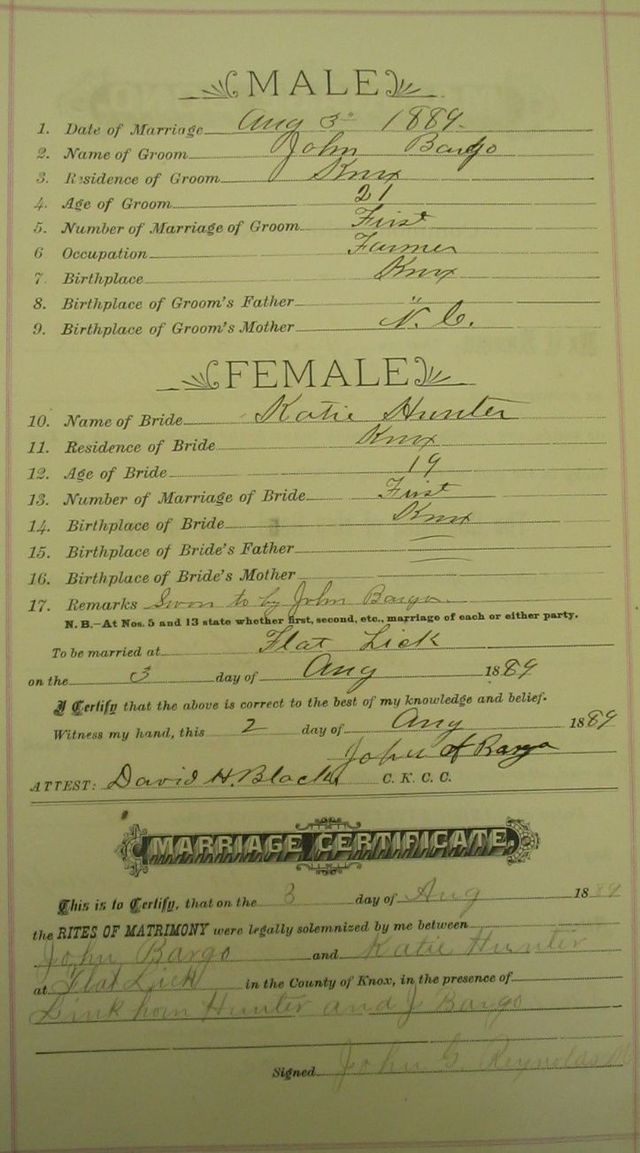 MALE
1. Date of Marriage Aug 3 1889
2. Name of Groom John Bargo
3. Residence of Groom Knox
4. Age of Groom 21
5. Number of Marriage of Groom First
6 Occupation Farmer
7. Birthplace Knox
8. Birthplace of Groom's Father "
9. Birthplace of Groom's Mother N. C.
FEMALE
10. Name of Bride Katie Hunter
11. Residence of Bride Knox
12. Age of Bride 19
13. Number of Marriage of Bride First
14. Birthplace of Bride Knox
15. Birthplace of Bride's Father
16. Birthplace of Bride's Mother
17. Remarks Swon to by John Bargo
N. B.—At Nos. 5 and 13 state whether first, second, etc., marriage of each or either party.
To be married at Flat Lick
on the 3 day of Aug 1889
I Certify that the above is correct to the best of my knowledge and belief.
Witness my hand, this 2 day of Aug 1889
John Bargo
ATTEST: David H. Black, C. K. C. C.
MARRIAGE CERTIFICATE.
This is to Certify, that on the 3 day of Aug 1889
the RITES OF MATRIMONY were legally solemnized by me between
John Bargo and Katie Hunter
at Flat Lick in the County of Knox, in the presence of
Linkhorn Hunter and J Bargo
Signed John G. Reynolds